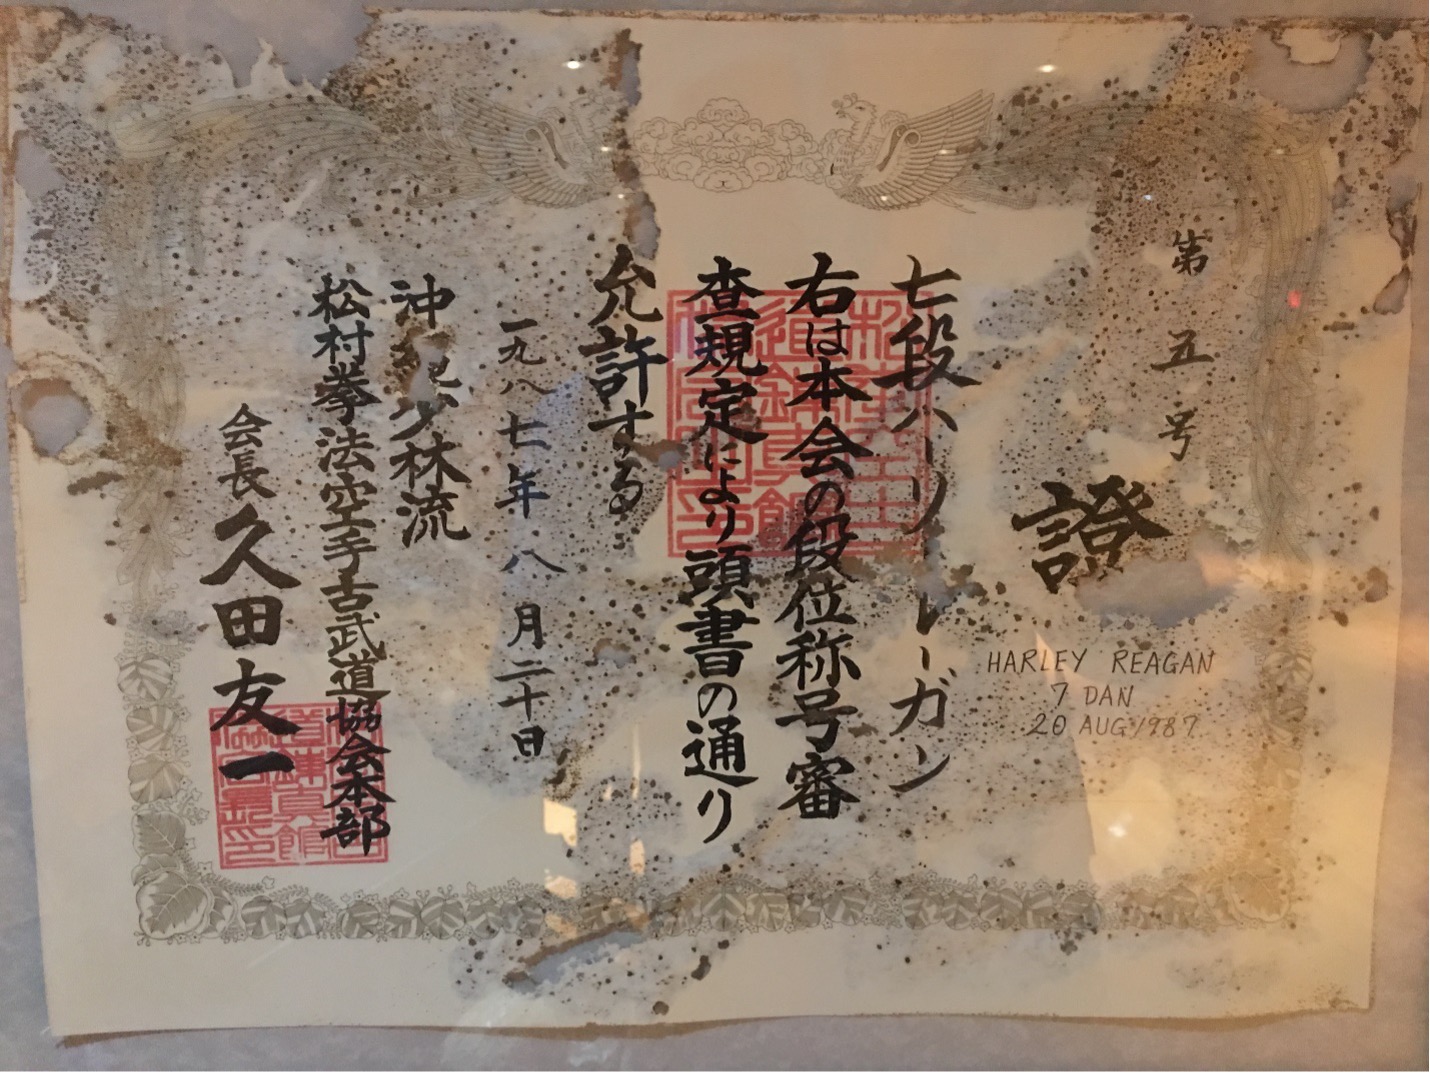 第五号
證
HARLEY REAGAN
7 DAN
20 AUG 1987
七段 ハーリ レーガン
右は本会の段位称号審
査規定により頭書の通り
允許する
一九八七年八月二十日
沖縄少林流
松村拳法空手古武道協会本部
会長 久田友一